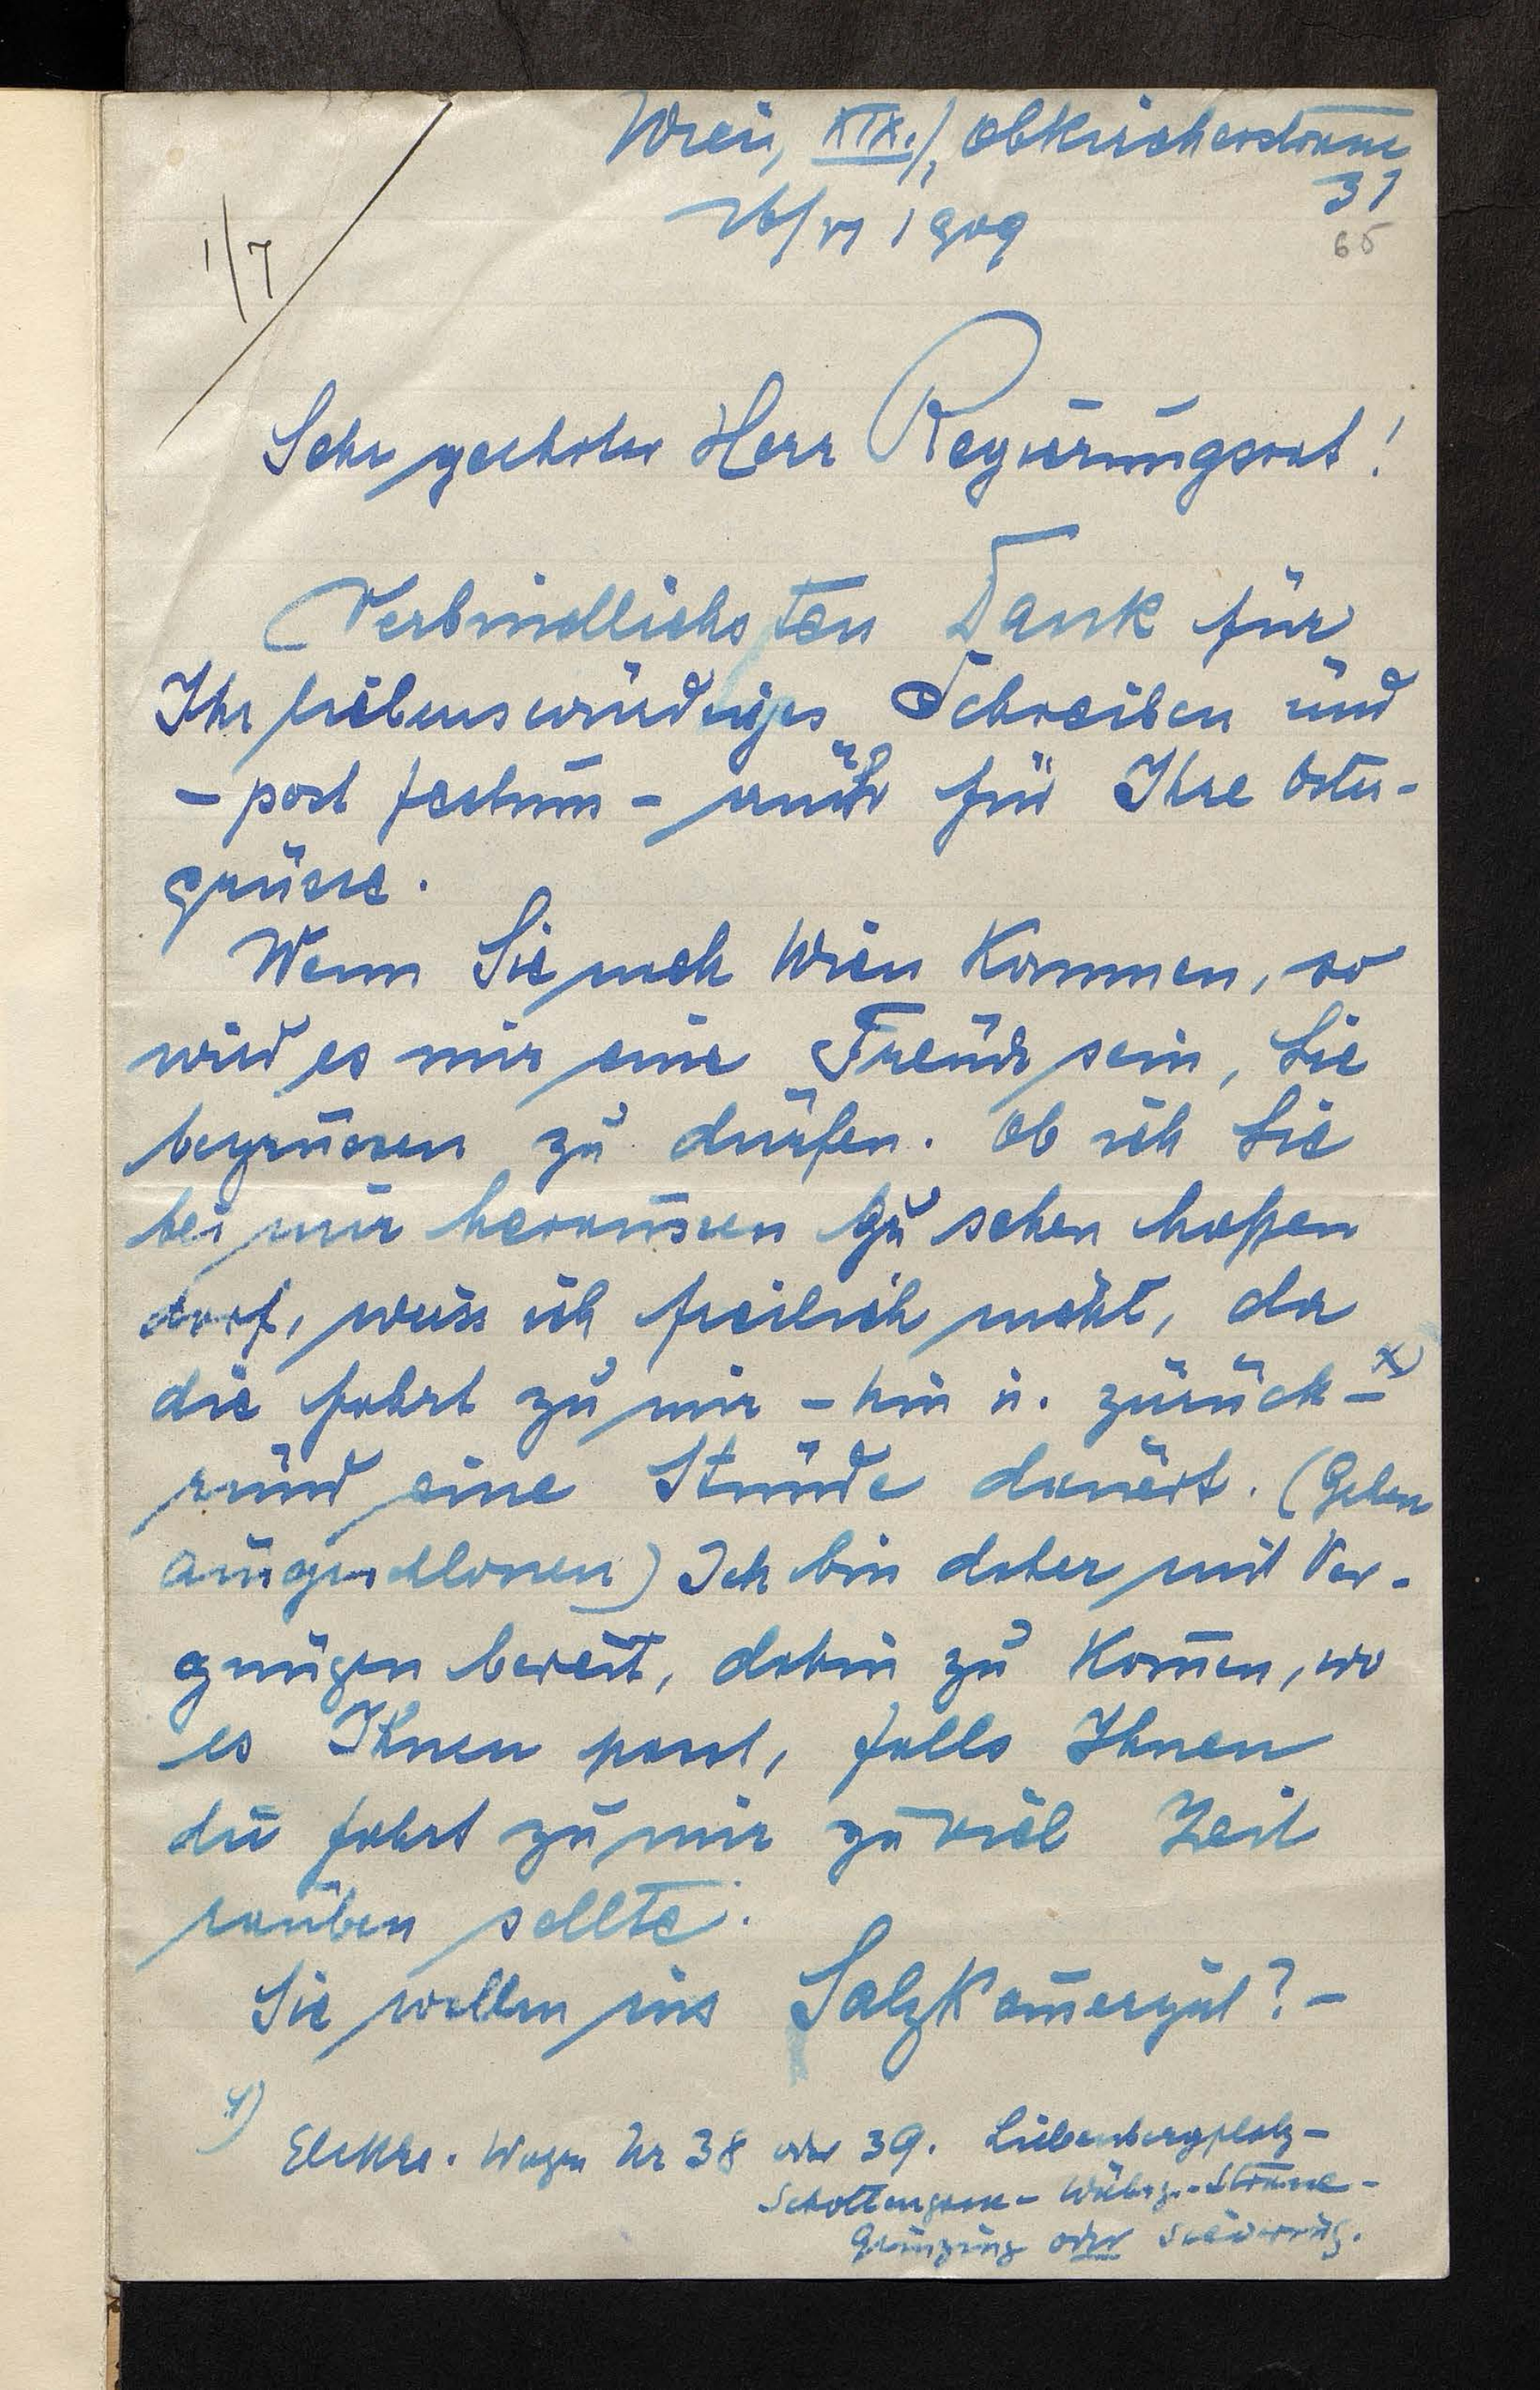 Wien, XIX./1, Obkircherstrasse
31
26/VI 1909
65
1/7
Sehr geehrter Herr Regierungsrat!
Verbindlichsten Dank für
Ihr liebenswürdiges Schreiben und
- post festum - auch für Ihre Oster-
grüsse.
Wenn Sie nach Wien kommen, so
wird es mir eine Freude sein, Sie
begrüssen zu dürfen. Ob ich Sie
bei mir heraussen zu sehen hoffen
darf, weiss ich freilich nicht, da
die Fahrt zu mir - hin u. zurück - x)
rund eine Stunde dauert. (Gehen
ausgeschlossen) Ich bin daher mit Ver-
gnügen bereit, dahin zu kom̄en, wo
es Ihnen passt, falls Ihnen
die Fahrt zu mir zu viel Zeit
rauben sollte.
Sie wollen ins Salzkam̄ergut? -
x) Elektr. Wagen Nr 38 oder 39. Liebenbergplatz -
Schottengasse - Währg.-Strasse -
Grinzing oder Sievering.